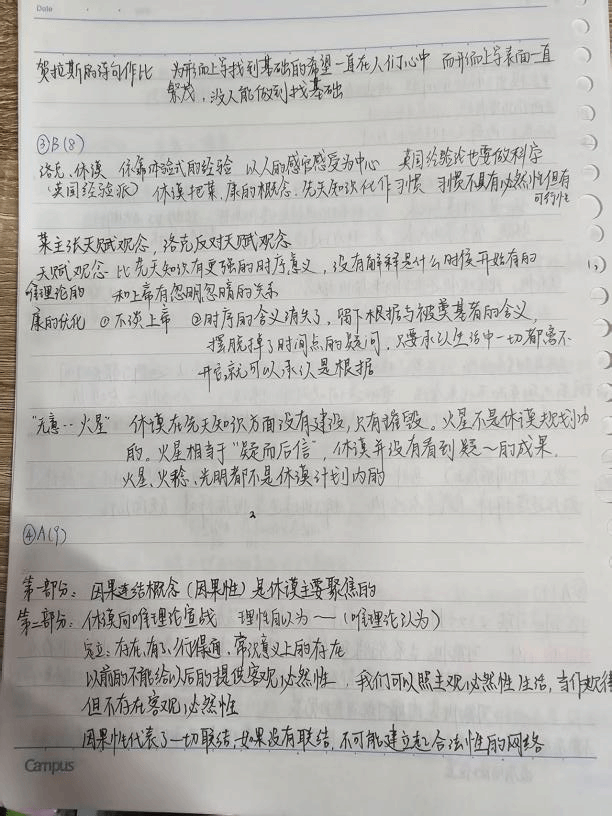 Date
贺拉斯的诗句作比 为形而上学找到基础的希望一直在人们心中 而形而上学表面一直
繁茂，没人能做到找基础
③B(8)
洛克、休谟 依靠体验式的经验 以人的感官感受为中心 英国经验论也要做科学
(英国经验派) 休谟把莱、康的概念、先天知识化作习惯 习惯不具有必然性但有
可行性
莱主张天赋观念，洛克反对天赋观念
天赋观念 比先天知识有更强的时序意义，没有解释是什么时候开始有的
唯理论的 和上帝有忽明忽暗的关系
康的优化 ①不谈上帝 ②时序的含义消失了，留下根据与被奠基者的含义，
摆脱掉了时间点的疑问，只要承认生活中一切都离不
开它就可以承认是根据
"无意··火星" 休谟在先天知识方面没有建设，只有摧毁。火星不是休谟规划功
的。火星相当于"疑而后信"，休谟并没有看到疑～的成果。
火星、火稔、光明都不是休谟计划内的
④A(9)
第一部分：因果连结概念(因果性)是休谟主要聚焦的
第二部分：休谟向唯理论宣战 理性自以为～(唯理论认为)
存在，有了，行得通，常识意义上的存在
以前的不能给以后的提供客观必然性，我们可以照主观必然性生活，当作规律
但不存在客观必然性
因果性代表了一切联结，如果没有联结，不可能建立起合法性的网络
Campus